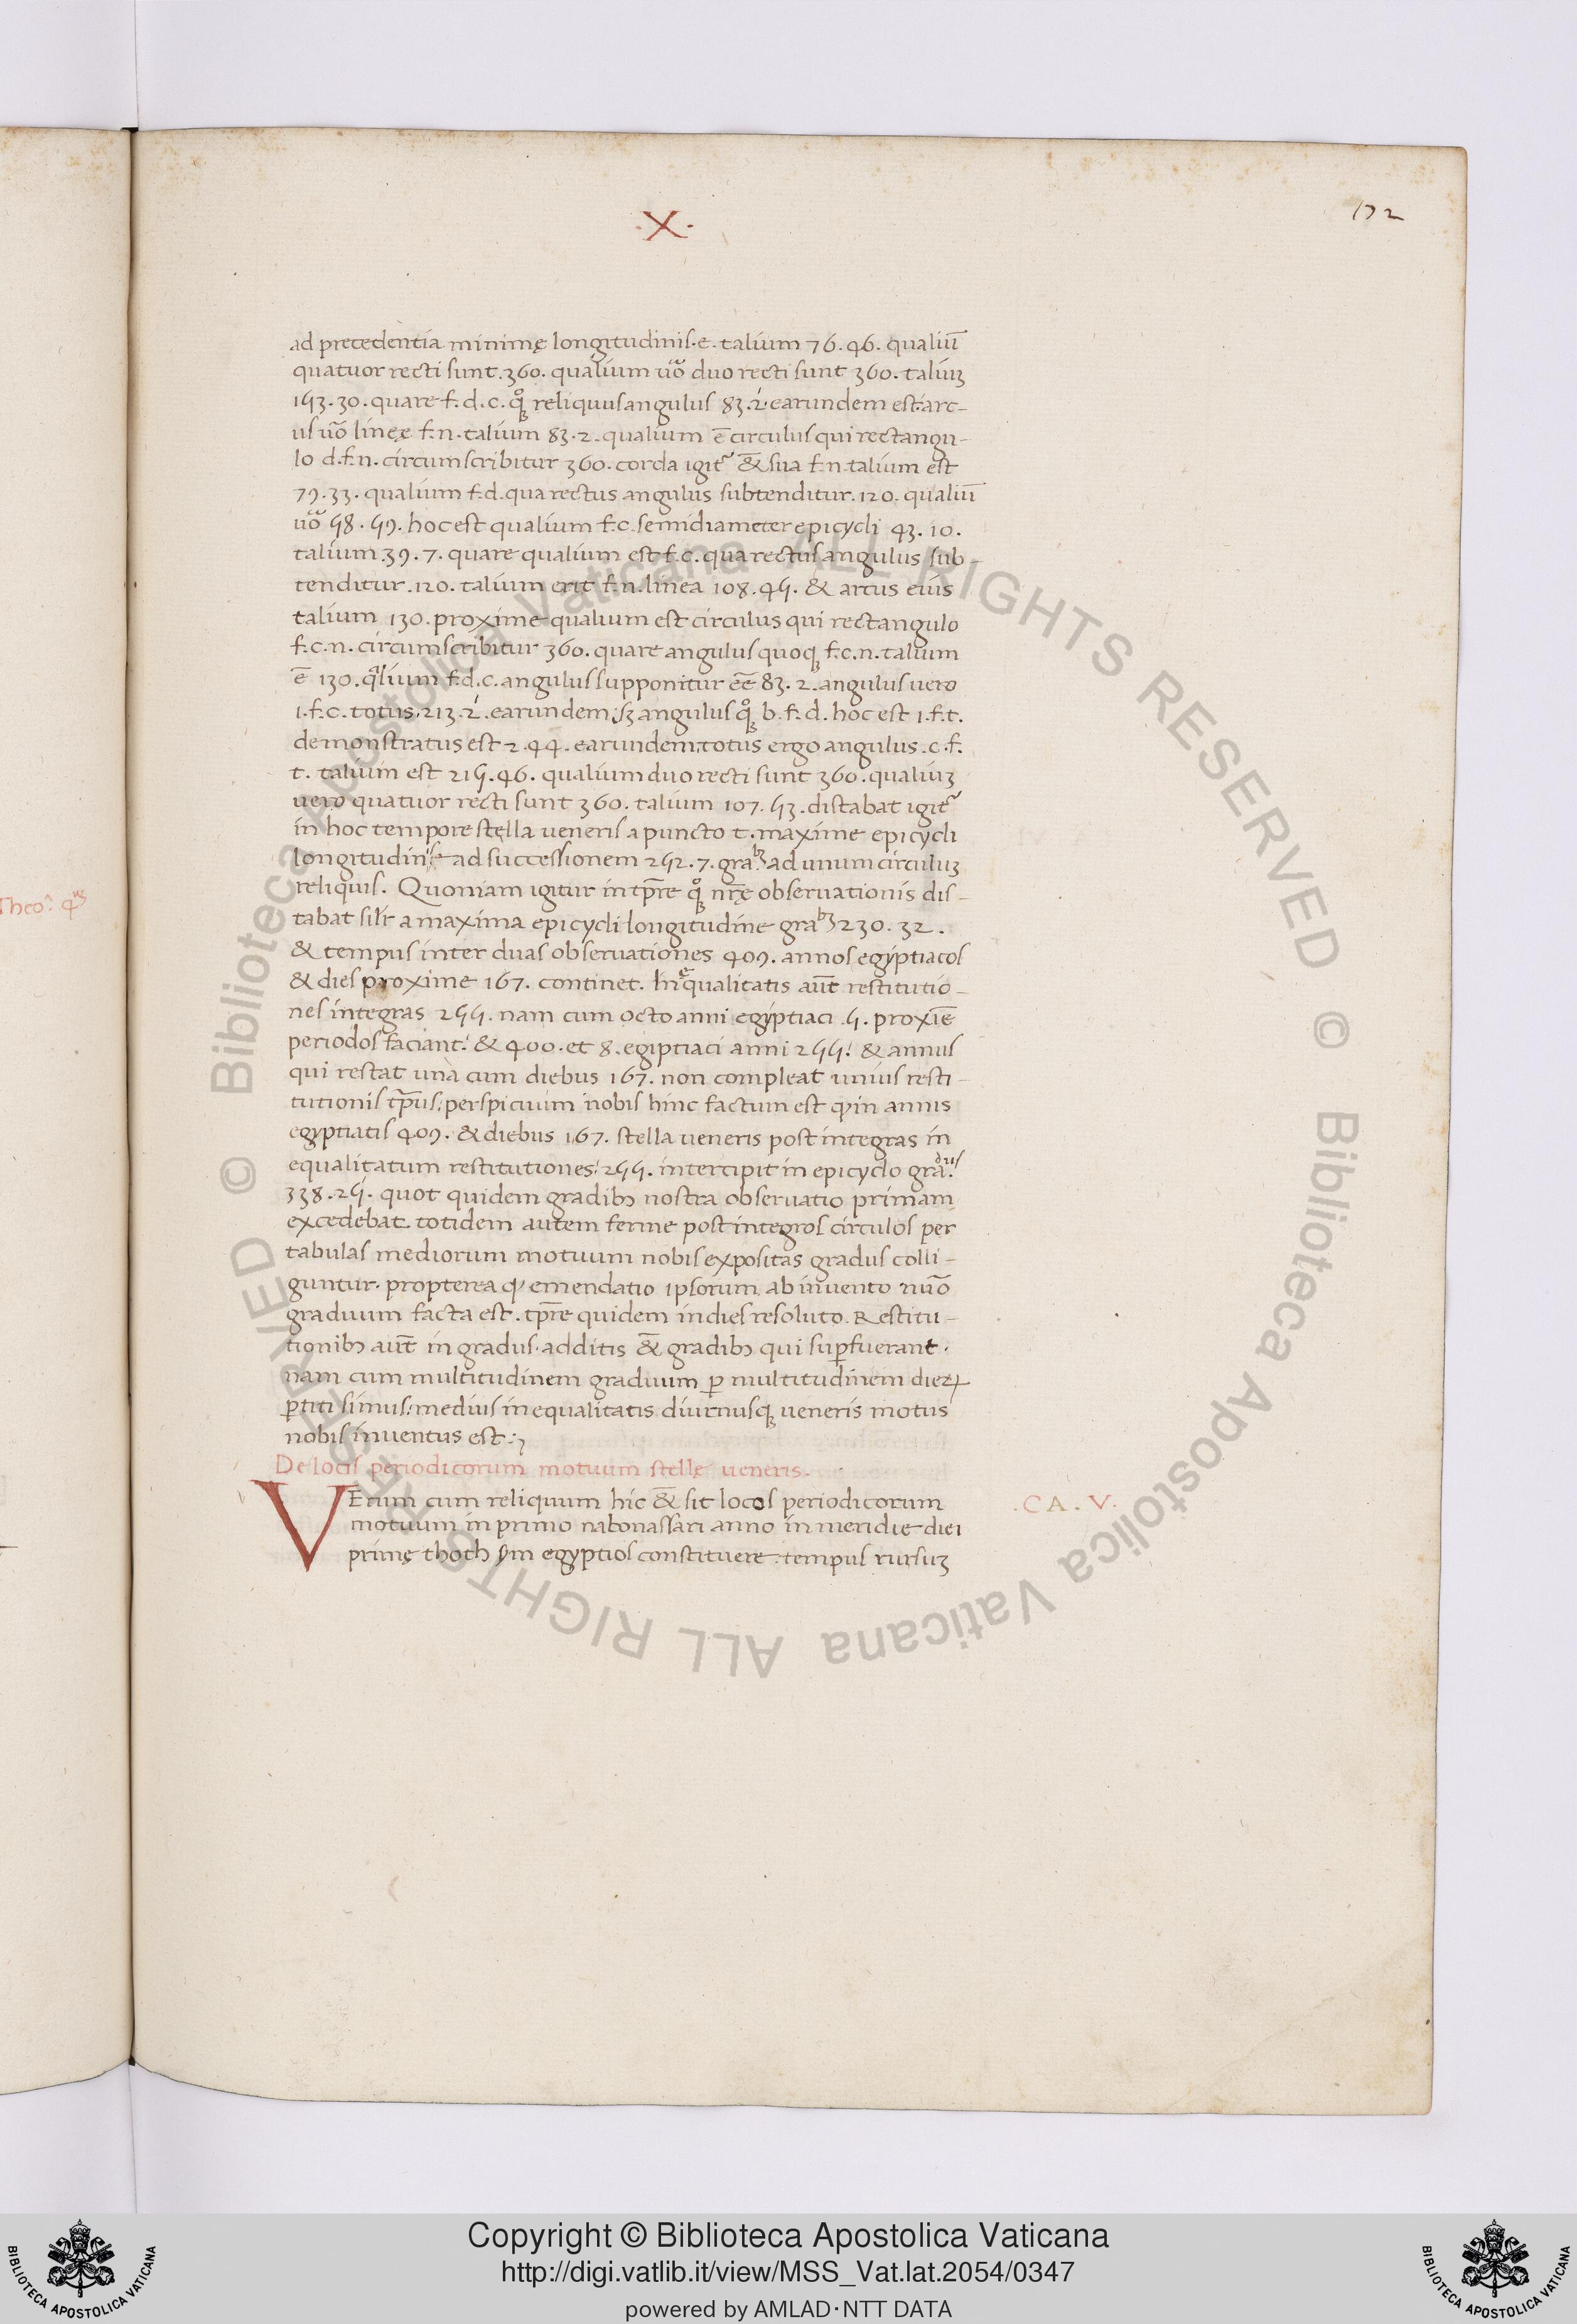 ·X·
172
ad precedentia minimę longitudinis·e· talium 76.46. qualiū
quatuor recti sunt.360. qualium ūo duo recti sunt 360. taliuꝫ
153.30. quare f.d.c. qꝫ reliquus angulus 83.2. earundem est: arc-
us ūo lineę f.n. talium 83.2. qualium ē circulus qui rectangu-
lo d.f.n. circumscribitur 360. corda igit̃ & sua f.n. talium est
79.33. qualium f.d. qua rectus angulus subtenditur.120. qualiū
ūo 58.59. hoc est qualium f.c. semidiameter epicycli 43.10.
talium 39.7. quare qualium est f.c. qua rectus angulus sub-
tenditur.120. talium erit f.n. linea 108.45. & arcus eius
talium 130. proxime qualium est circulus qui rectangulo
f.c.n. circumscribitur 360. quare angulus quoqꝫ f.c.n. talium
ē 130. q̃lium f.d.c. angulus supponitur eē 83.2. angulus uero
1.f.c. totus.213.2. earundem: sꝫ angulus qꝫ b.f.d. hoc est 1.f.t.
demonstratus est 2.44. earundem: totus ergo angulus.c.f.
t. talium est 215.46. qualium duo recti sunt 360. qualiuꝫ
uero quatuor recti sunt 360. talium 107.53. distabat igit̃
in hoc tempore stella ueneris a puncto t. maxime epicycli
longitudinis ad successionem 252.7. grabꝫ ad unum circuluꝫ
reliquis. Quoniam igitur in tp̄re qꝫ nr̄ę obseruationis dis-
tabat sil̄r a maxima epicycli longitudine grabꝫ 230.32.
& tempus inter duas obseruationes 409. annos egyptiacos
& dies proxime 167. continet. Inęqualitatis aūt restitutio-
nes integras 255. nam cum octo anni egyptiaci .5. proxiē
periodos faciant: & 400. et 8. egiptiaci anni 255: & annus
qui restat una cum diebus 167. non compleat unius resti-
tutionis tp̄us: perspicuum nobis hinc factum est ꝙ in annis
egyptiacis 409. & diebus 167. stella ueneris post integras in
equalitatum restitutiones: 255. intercipit in epicyclo gradus
338.25. quot quidem gradibꝫ nostra obseruatio primam
excedebat. totidem autem ferme post integros circulos per
tabulas mediorum motuum nobis expositas gradus colli-
guntur. propterea ꝙ emendatio ipsorum ab inuento nūo
graduum facta est. tp̄re quidem in dies resoluto. Restitu-
tionibꝫ aūt in gradus. additis & gradibꝫ qui suꝑfuerant.
nam cum multitudinem graduum ꝑ multitudinem dieꝝ
ꝑtiti simus: medius inequalitatis diurnusqꝫ ueneris motus
nobis inuentus est:
De locis periodicorum motuum stellę ueneris.
VErum cum reliquum hic & sit locos periodicorum
.CA.V.
motuum in primo nabonassari anno in meridie diei
primę thoth s̄m egyptios constituere: tempus rursuꝫ
Theo. 4
Copyright © Biblioteca Apostolica Vaticana
http://digi.vatlib.it/view/MSS_Vat.lat.2054/0347
powered by AMLAD·NTT DATA
BIBLIOTECA APOSTOLICA VATICANA
BIBLIOTECA APOSTOLICA VATICANA
© Biblioteca Apostolica Vaticana ALL RIGHTS RESERVED
© Biblioteca Apostolica Vaticana ALL RIGHTS RESERVED